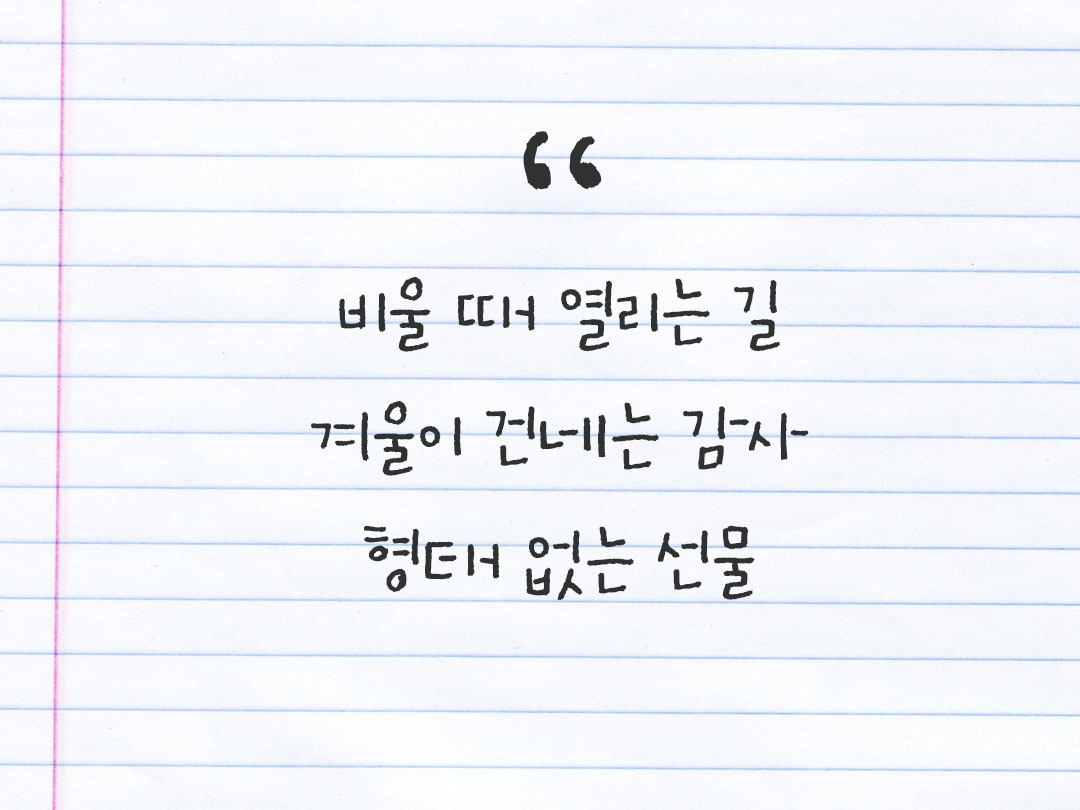 “
비울 때 열리는 길
겨울이 건네는 감사
형태 없는 선물